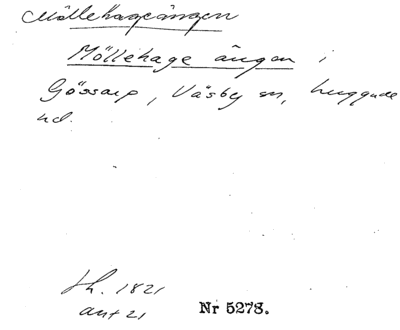 Möllehageängen
Möllehage ängen i
Gössarp, Väsby sn, Luggude
hd.
Lh. 1821
akt 21
Nr 5278.